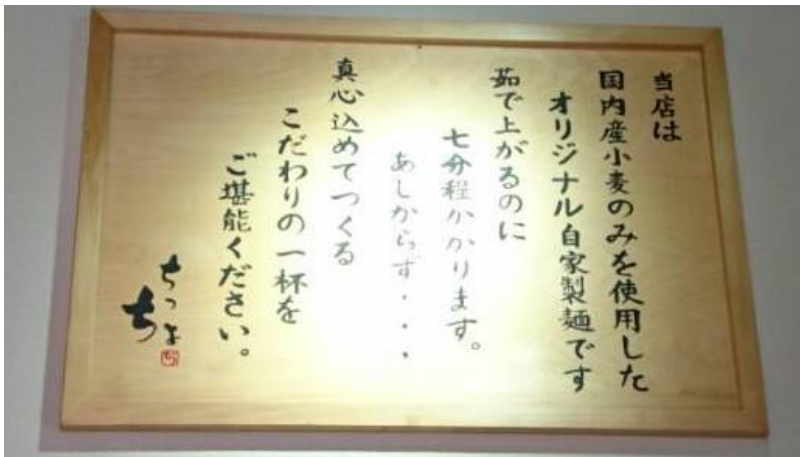 当店は
国内産小麦のみを使用した
オリジナル自家製麺です
茹で上がるのに
七分程かかります。
あしからず・・・
真心込めてつくる
こだわりの一杯を
ご堪能ください。